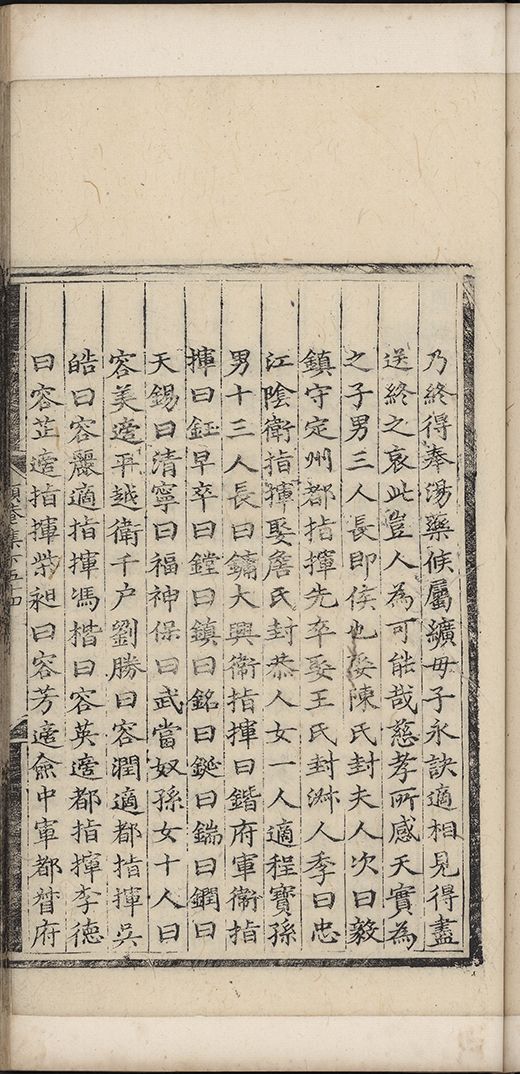 乃終得奉湯藥候屬纊母子永訣適相見得盡
送終之哀此豈人為可能哉慈孝所感天實為
之子男三人長即侯也娶陳氏封夫人次曰毅
鎮守定州都指揮先卒娶王氏封淑人季曰忠
江陰衛指揮娶詹氏封恭人女一人適程寶孫
男十三人長曰鏞大興衛指揮曰鍇府軍衛指
揮曰鈺早卒曰鏜曰鎮曰銘曰鋋曰鍴曰鐦曰
天錫曰清寧曰福神保曰武當奴孫女十人曰
容美適平越衛千户劉勝曰容潤適都指揮吳
皓曰容麗適指揮馮楷曰容英適都指揮李德
曰容芷適指揮柴昶曰容芳適僉中軍都督府
頤菴集